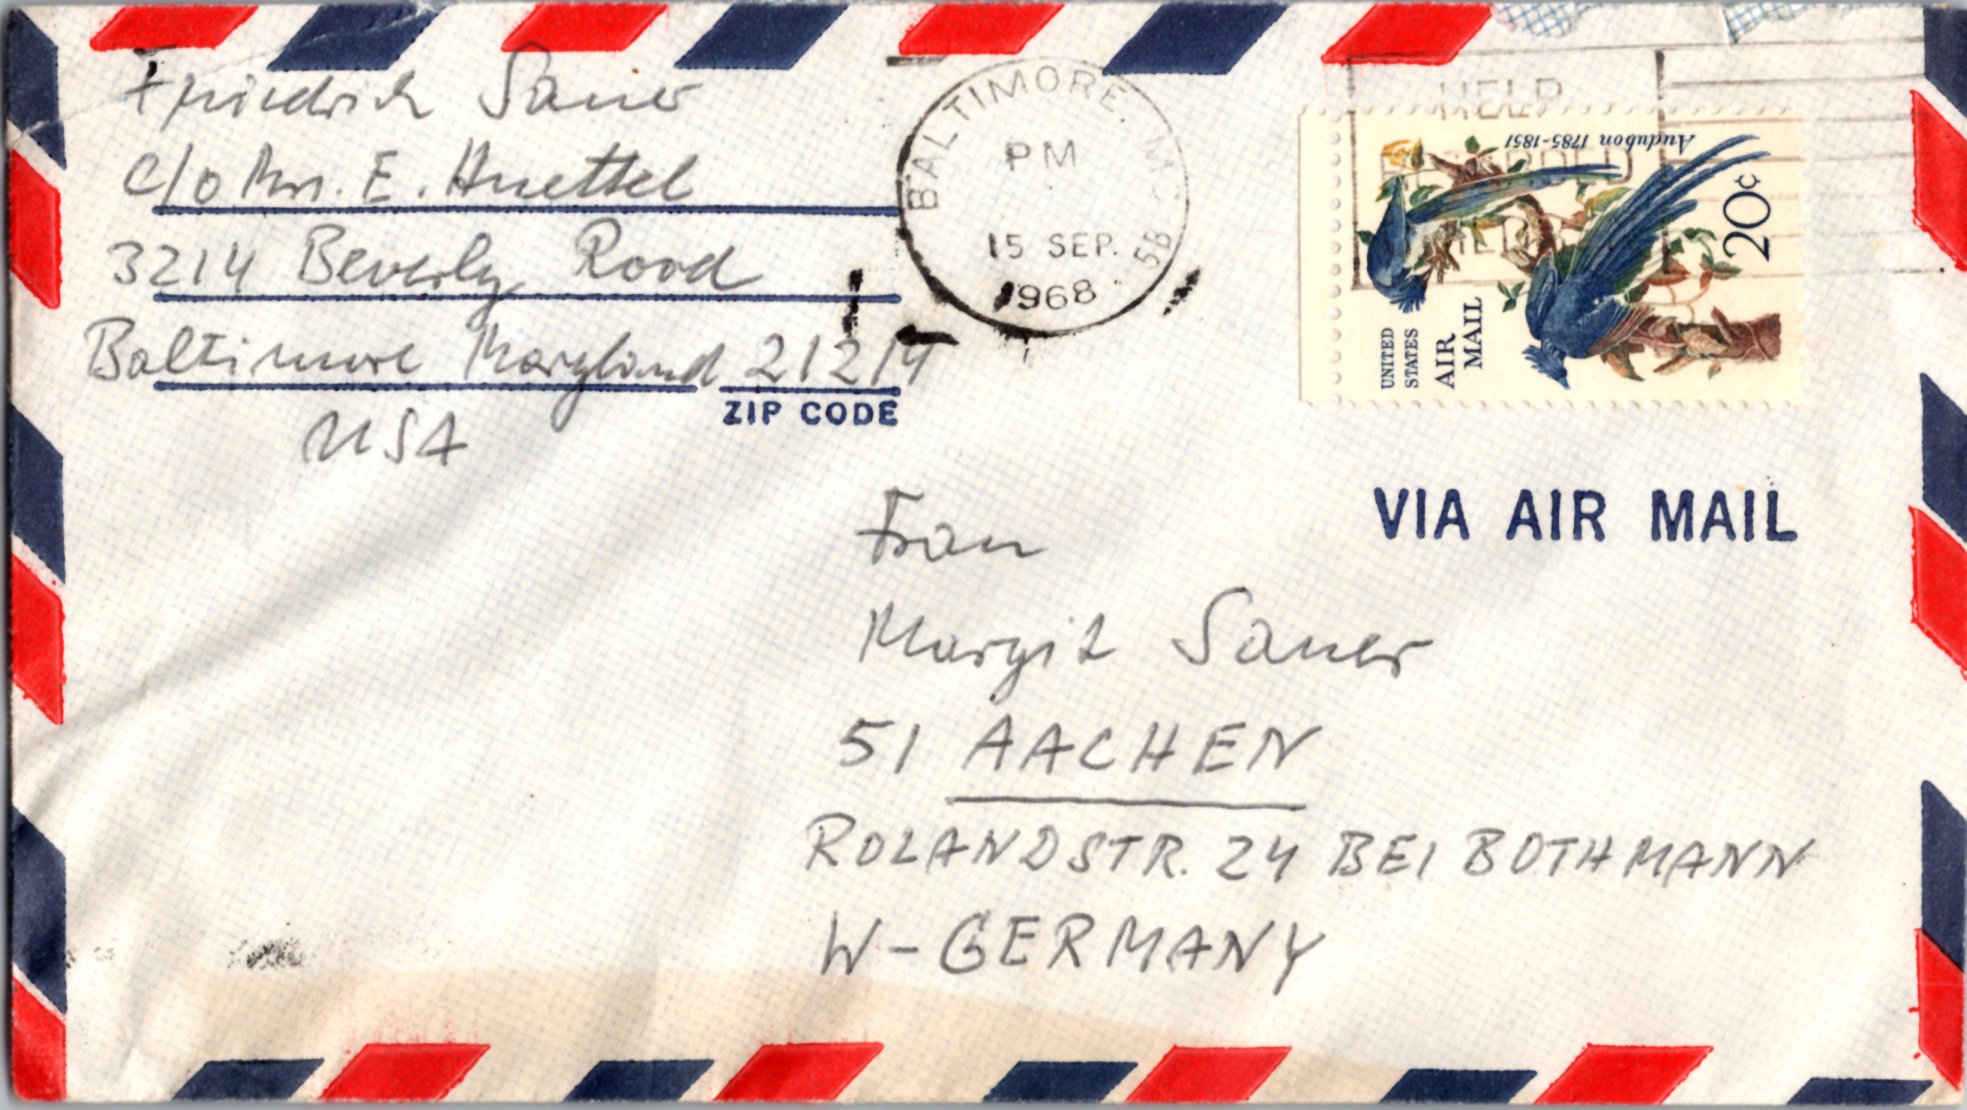 Friedrich Sauer
c/o Mrs. E. Huettel
3214 Beverly Road
Baltimore Maryland 21214
ZIP CODE
USA
BALTIMORE, MD
PM
15 SEP.
1968
5B
HELP
HER
Audubon 1785-1851
20c
UNITED
STATES
AIR
MAIL
VIA AIR MAIL
Frau
Margit Sauer
51 AACHEN
ROLANDSTR. 24 BEI BOTHMANN
W-GERMANY